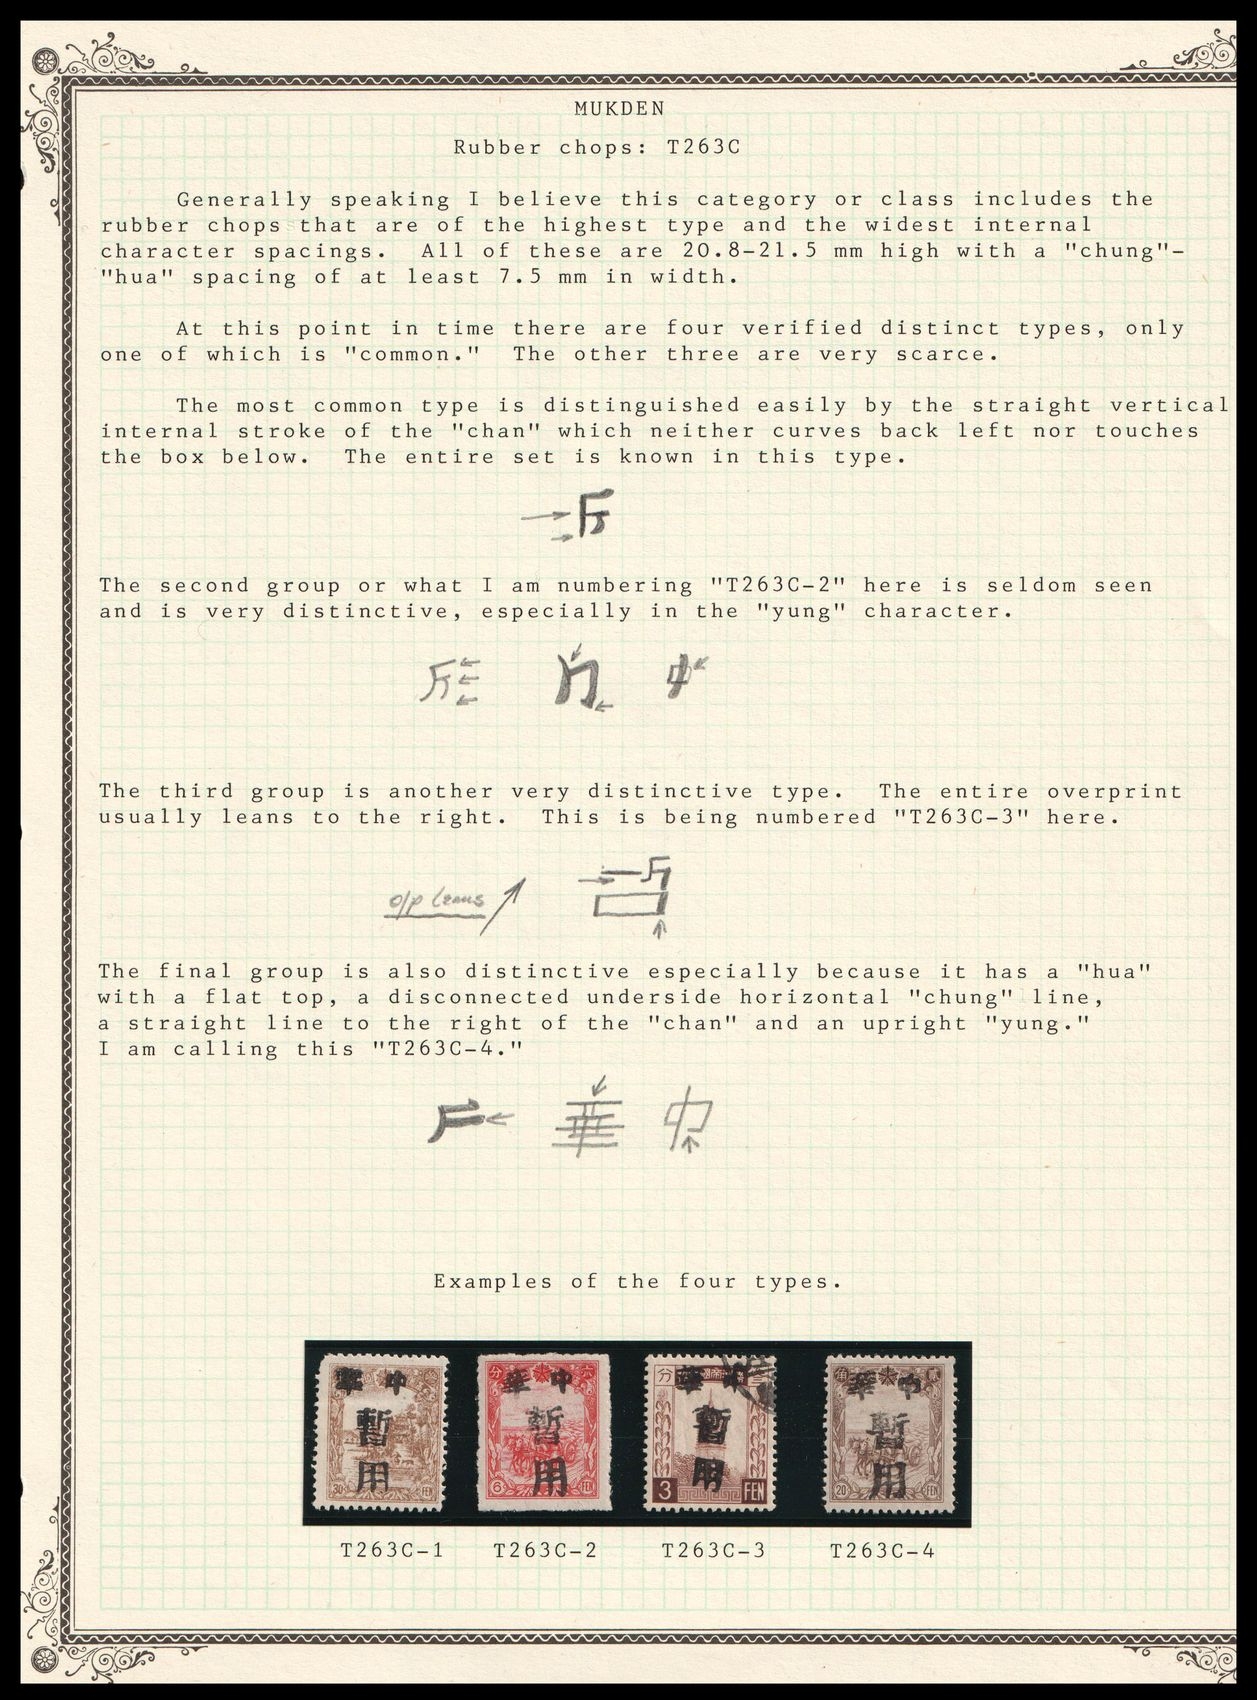 MUKDEN
Rubber chops: T263C
Generally speaking I believe this category or class includes the
rubber chops that are of the highest type and the widest internal
character spacings. All of these are 20.8-21.5 mm high with a "chung"-
"hua" spacing of at least 7.5 mm in width.
At this point in time there are four verified distinct types, only
one of which is "common." The other three are very scarce.
The most common type is distinguished easily by the straight vertical
internal stroke of the "chan" which neither curves back left nor touches
the box below. The entire set is known in this type.
The second group or what I am numbering "T263C-2" here is seldom seen
and is very distinctive, especially in the "yung" character.
The third group is another very distinctive type. The entire overprint
usually leans to the right. This is being numbered "T263C-3" here.
o/p leans
The final group is also distinctive especially because it has a "hua"
with a flat top, a disconnected underside horizontal "chung" line,
a straight line to the right of the "chan" and an upright "yung."
I am calling this "T263C-4."
華 中
Examples of the four types.
華中 華中 華中 華中
暫 暫 暫 暫
用 用 用 用
30 FEN 6 FEN 3 FEN 20 FEN
T263C-1 T263C-2 T263C-3 T263C-4